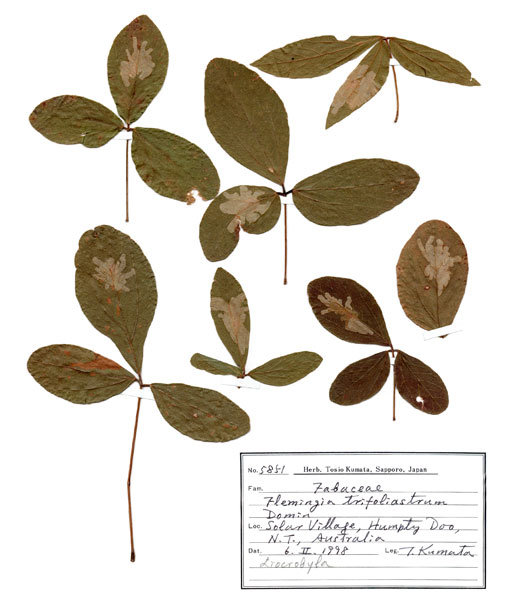 No. 5851 Herb. Tosio Kumata, Sapporo, Japan
Fam. Fabaceae
Flemingia trifoliastrum
Domin
Loc. Solar Village, Humpty Doo,
N.T., Australia
Dat. 6. II. 1998 Leg. T. Kumata
Liocrobyla